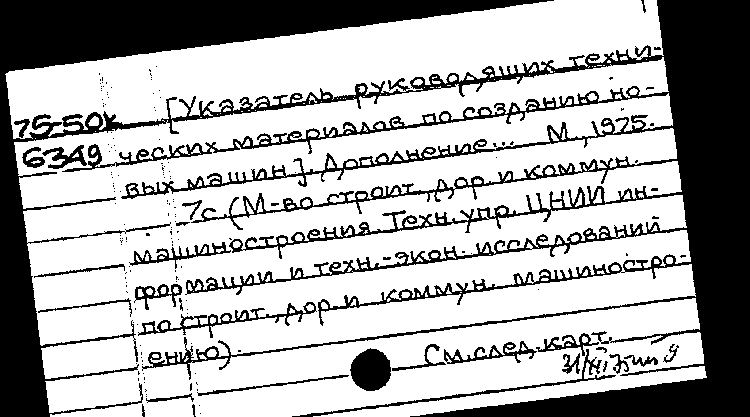 75-50к [Указатель руководящих техни-
6349 ческих материалов по созданию но-
вых машин]. Дополнение... М., 1975.
7с. (М-во строит., дор. и коммун.
машиностроения. Техн. упр. ЦНИИ ин-
формации и техн.-экон. исследований
по строит., дор. и коммун. машиностро-
ению).
См. след. карт.